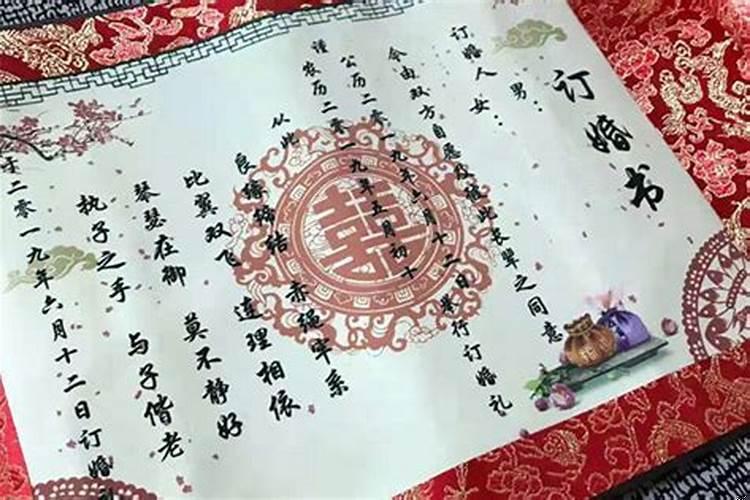 订婚书
男：
订婚人 女：
今由双方自愿及彼此长辈之同意
公历二零一九年六月十二日举行订婚礼
谨 农历二零一九年五月初十
从此
良缘缔结 赤绳牢系
比翼双飞 连理相依
琴瑟在御 莫不静好
执子之手 与子偕老
于二零一九年六月十二日订婚
囍